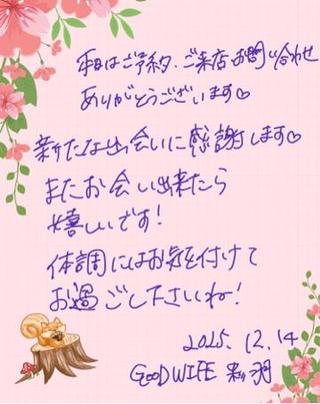 本日はご予約、ご来店、お問い合わせ
ありがとうございます♡
新たな出会いに感謝します♡
またお会い出来たら
嬉しいです!
体調にはお気を付けて
お過ごし下さいね!
2025. 12. 14
GOOD WIFE